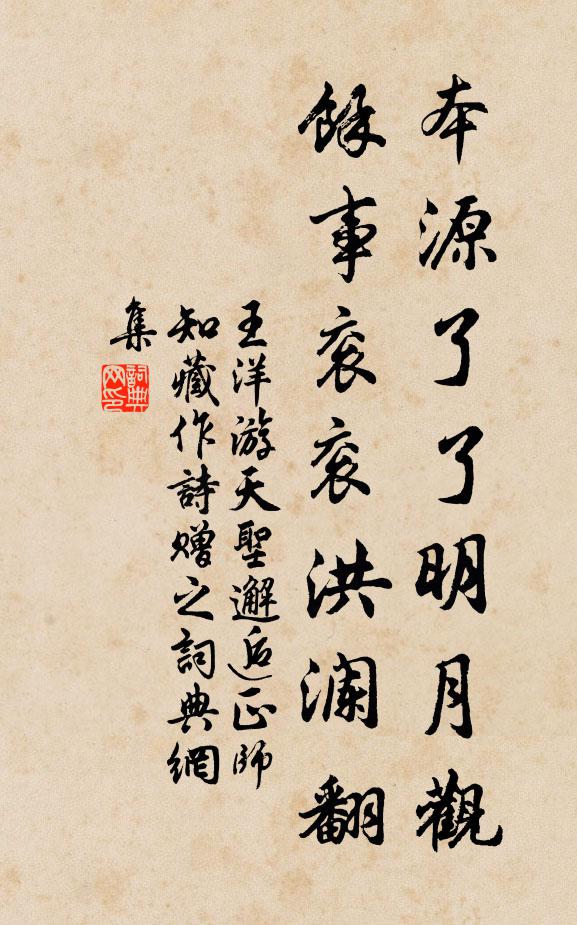 本源了了明月觀
餘事衮衮洪瀾翻
王洋游天聖邂逅正師
知藏作詩贈之詞典網
集
詞典
网印